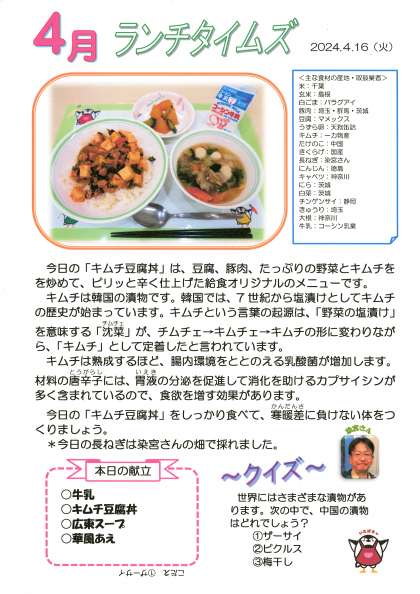 4月 ランチタイムズ
2024.4.16（火）
＜主な食材の産地・取扱業者＞
米：千葉
玄米：島根
白ごま：パラグアイ
豚肉：埼玉・群馬・茨城
豆腐：マメックス
うずら卵：天狗缶詰
キムチ：一力物産
たけのこ：中国
きくらげ：国産
長ねぎ：染宮さん
にんじん：徳島
キャベツ：神奈川
にら：茨城
白菜：茨城
チンゲンサイ：静岡
きゅうり：埼玉
大根：神奈川
牛乳：コーシン乳業
今日の「キムチ豆腐丼」は、豆腐、豚肉、たっぷりの野菜とキムチを
を炒めて、ピリッと辛く仕上げた給食オリジナルのメニューです。
キムチは韓国の漬物です。韓国では、7世紀から塩漬けとしてキムチ
の歴史が始まっています。キムチという言葉の起源は、「野菜の塩漬け」
チムチェ
を意味する「沈菜」が、チムチェ→キムチェ→キムチの形に変わりなが
ら、「キムチ」として定着したと言われています。
キムチは熟成するほど、腸内環境をととのえる乳酸菌が増加します。
とうがらし いえき
材料の唐辛子には、胃液の分泌を促進して消化を助けるカプサイシンが
多く含まれているので、食欲を増す効果があります。
かんだんさ
今日の「キムチ豆腐丼」をしっかり食べて、寒暖差に負けない体をつ
くりましょう。
＊今日の長ねぎは染宮さんの畑で採れました。
染宮さん
本日の献立
○牛乳
○キムチ豆腐丼
○広東スープ
○華風あえ
～クイズ～
世界にはさまざまな漬物があ
ります。次の中で、中国の漬物
はどれでしょう？
①ザーサイ
②ピクルス
③梅干し
こたえ ①ザーサイ